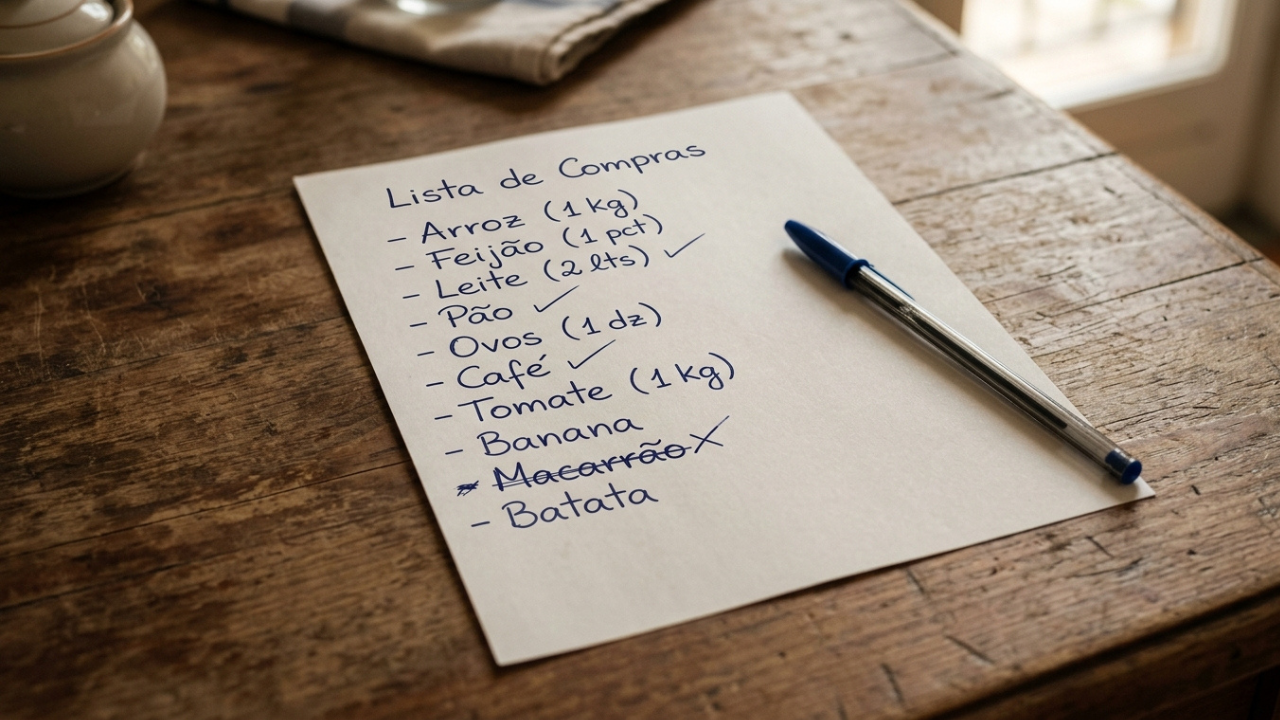 Lista de Compras
- Arroz (1 kg)
- Feijão (1 pct)
- Leite (2 lts) ✓
- Pão ✓
- Ovos (1 dz)
- Café ✓
- Tomate (1 kg)
- Banana
- Macarrão X
- Batata